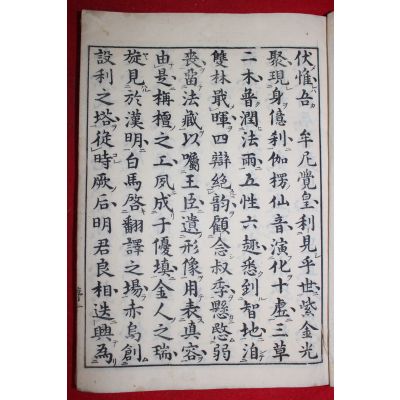 伏惟吾 牟尼覺皇利見乎世紫金光
聚現身億利伽楞仙音演化十虛三草
二木普潤法雨五性六趣悉到智地洎
雙林戢暉四辯絕韵顧念叔季懸愍弱
喪嗇法藏以囑王臣遺形像用表真容
由是栴檀之工夙成于優塡金人之瑞
旋見於漢明白馬啓翻譯之場赤烏創
設利之塔從時厥后明君良相迭興爲
序一